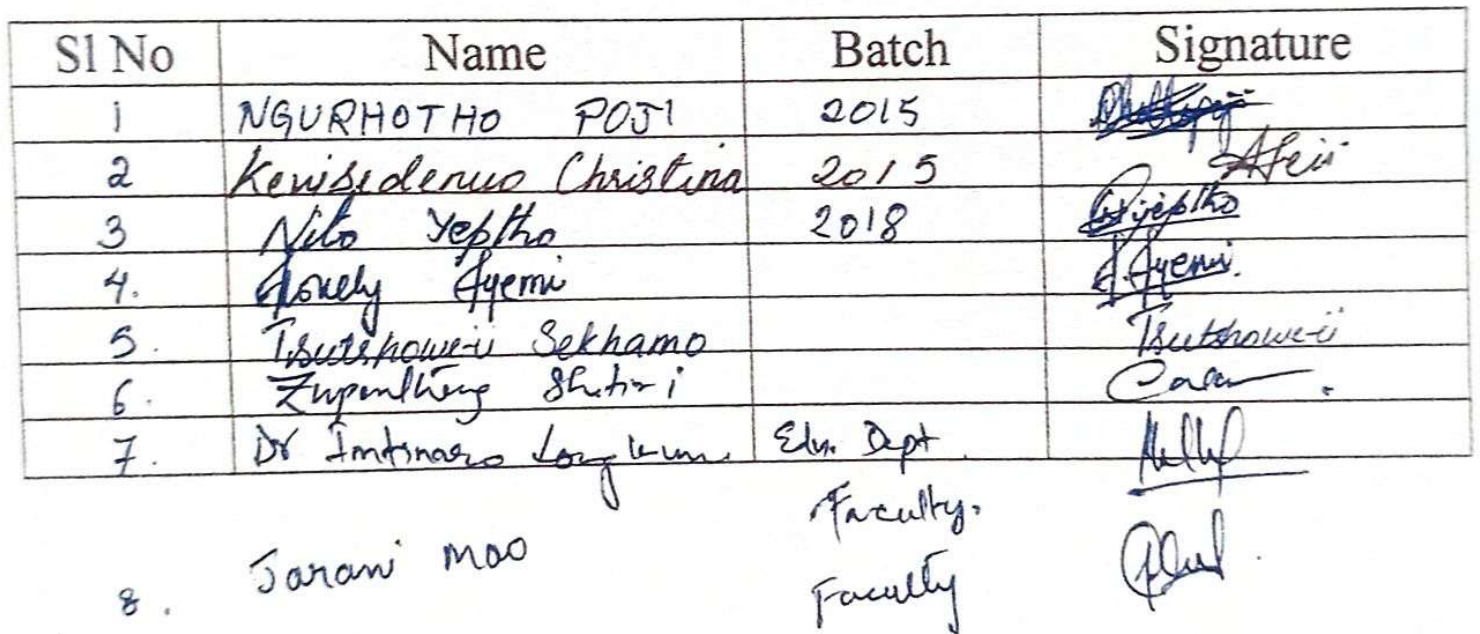 Sl No Name Batch Signature
1 NGURHOTHO POJI 2015
2 Kevisedenuo Christina 2015 Afeii
3 Nito Yeptho 2018 Yeptho
4. Lovely Ayemi Ayemi.
5. Tsutshowe-ü Sekhamo Tsutshowe-ü
6. Zupenthung Shitiri
7. Dr Imtinaro Longkum. Edn. Dept.
Faculty.
8. Jarani Mao Faculty